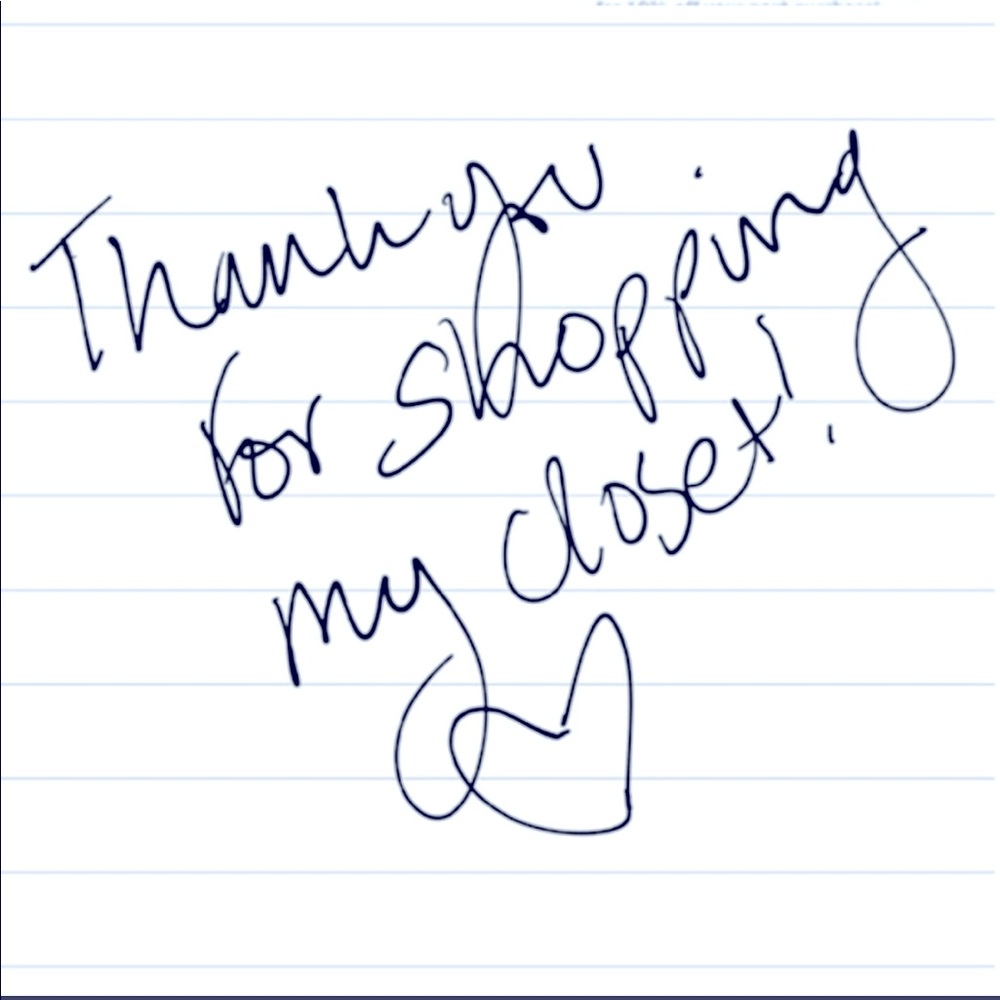 Thank you
for shopping
my closet!